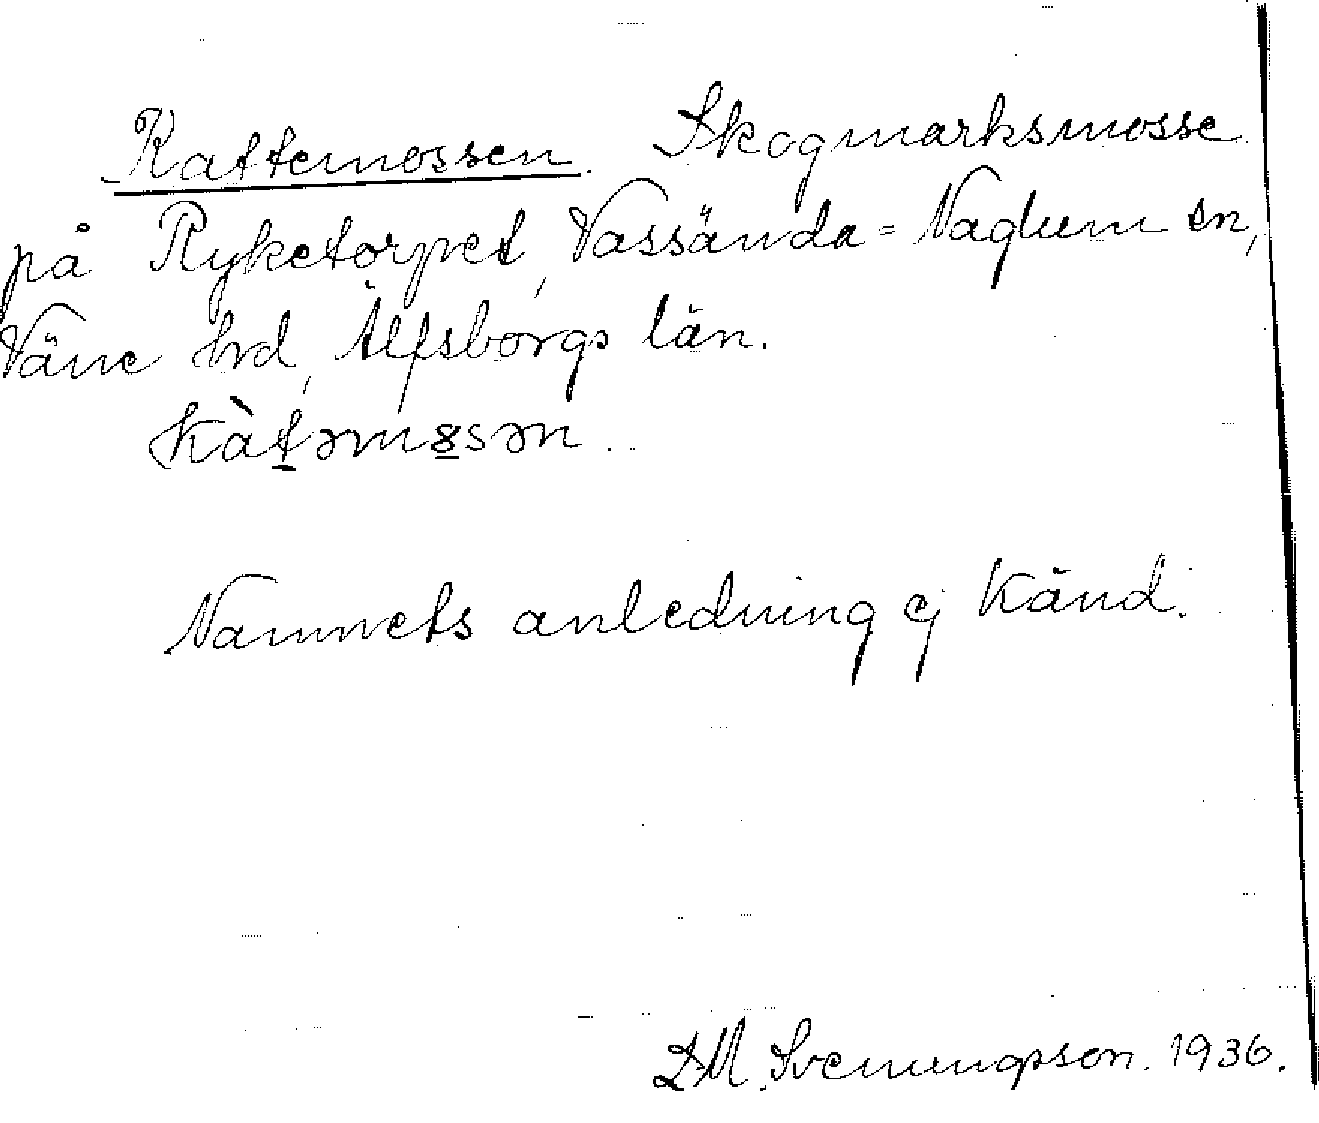 Kattemossen. Skogmarksmosse
på Ryketorpet, Vassända=Naglum sn,
Väne hrd, Älfsborgs län.
kàt̲əm8̲sən.
Namnets anledning ej känd.
D.M. Svenungsson. 1936.